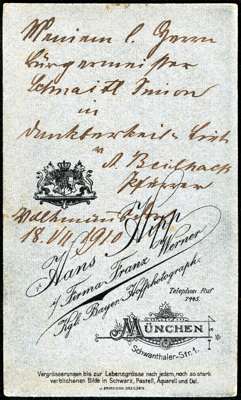 Meinem l. Herrn
Bürgermeister
Schmaitl Senior
in
Dankbarkeit u.
A. Beilhack
Pfarrer
18. VII. 1910
Hans Hipp
v/ Firma Franz Werner
Kgl. Bayer. Hofphotograph.
Telephon Ruf
7445.
MÜNCHEN
Schwanthaler-Str. 1.
Vergrösserungen bis zur Lebensgrösse nach jedem, noch so stark
verblichenen Bilde in Schwarz, Pastell, Aquarell und Oel.